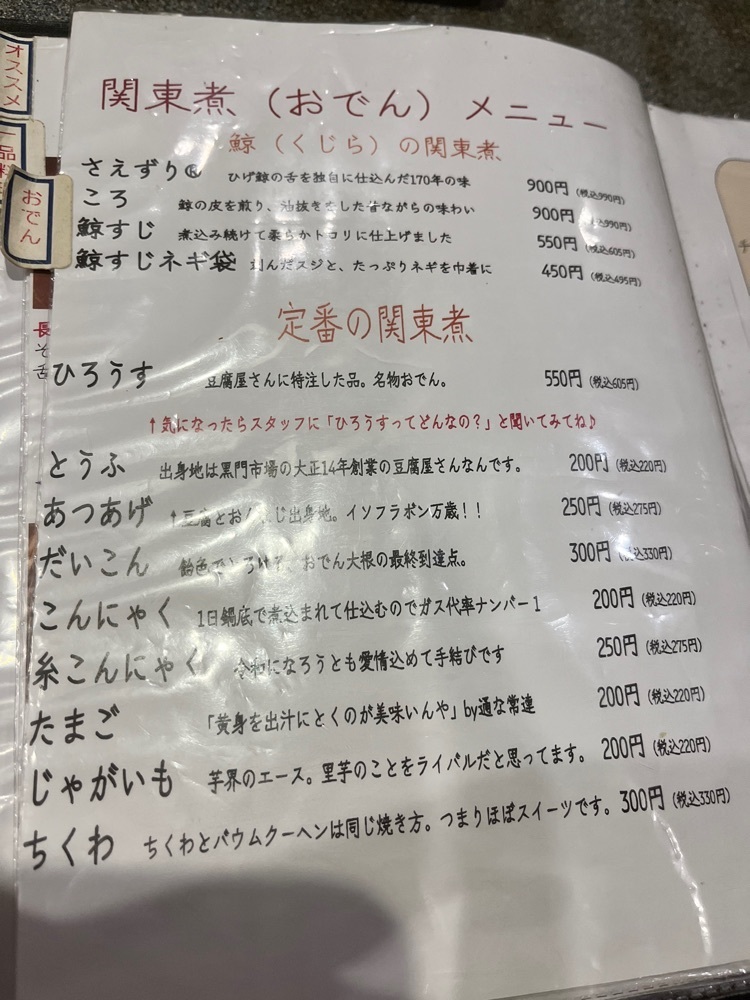 オススメ
一品料
おでん
関東煮（おでん）メニュー
鯨（くじら）の関東煮
さえずり® ひげ鯨の舌を独自に仕込んだ170年の味 900円（税込990円）
ころ 鯨の皮を煎り、油抜きをした昔ながらの味わい 900円（税込990円）
鯨すじ 煮込み続けて柔らかトロリに仕上げました 550円（税込605円）
鯨すじネギ袋 刻んだスジと、たっぷりネギを巾着に 450円（税込495円）
定番の関東煮
長
そ
舌
ひろうす 豆腐屋さんに特注した品。名物おでん。 550円（税込605円）
↑気になったらスタッフに「ひろうすってどんなの？」と聞いてみてね♪
とうふ 出身地は黒門市場の大正14年創業の豆腐屋さんなんです。 200円（税込220円）
あつあげ ↑豆腐とおなじ出身地。イソフラボン万歳！！ 250円（税込275円）
だいこん 飴色でとろける、おでん大根の最終到達点。 300円（税込330円）
こんにゃく 1日鍋底で煮込まれて仕込むのでガス代率ナンバー1 200円（税込220円）
糸こんにゃく 令和になろうとも愛情込めて手結びです 250円（税込275円）
たまご 「黄身を出汁にとくのが美味いんや」by通な常連 200円（税込220円）
じゃがいも 芋界のエース。里芋のことをライバルだと思ってます。 200円（税込220円）
ちくわ ちくわとバウムクーヘンは同じ焼き方。つまりほぼスイーツです。 300円（税込330円）